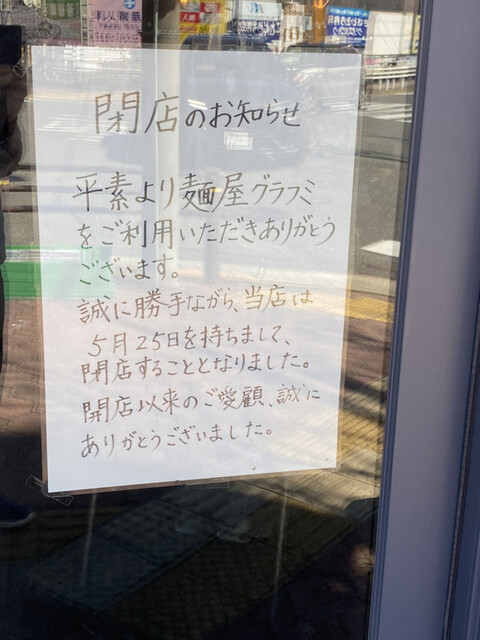 閉店のお知らせ
平素より麺屋グラフミ
をご利用いただきありがとう
ございます。
誠に勝手ながら、当店は
5月25日を持ちまして、
閉店することとなりました。
開店以来のご愛顧、誠に
ありがとうございました。